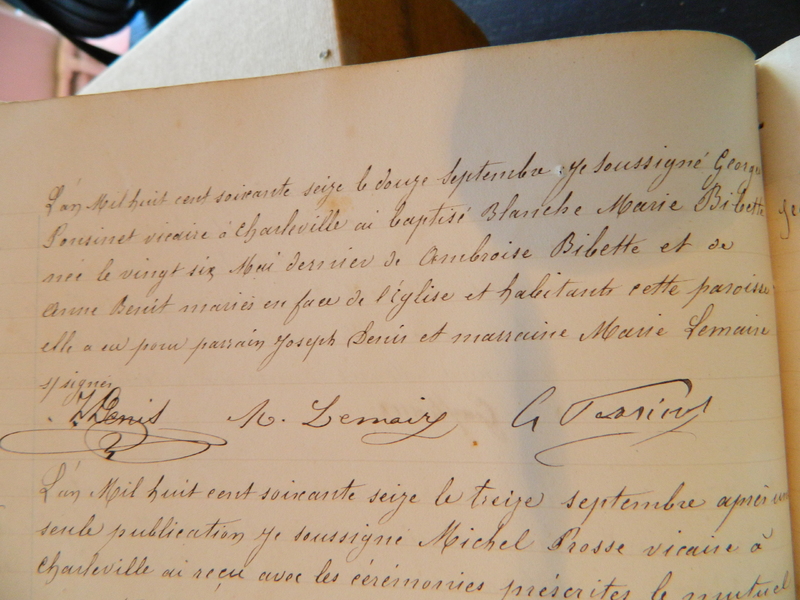 L'an Mil huit cent soixante seize le douze Septembre Je soussigné George
Ponsinet vicaire à Charleville ai baptisé Blanche Marie Bibette
née le vingt six Mai dernier de Ambroise Bibette et de
Anne Benit mariés en face de l'église et habitants cette paroisse
elle a eu pour parrain Joseph Denis et marraine Marie Lemaire
s/signés
J Denis M. Lemaire G
L'an Mil huit cent soixante seize le treize septembre après une
seule publication Je soussigné Michel Prosse vicaire à
Charleville ai reçu avec les cérémonies préscrites le mutuel